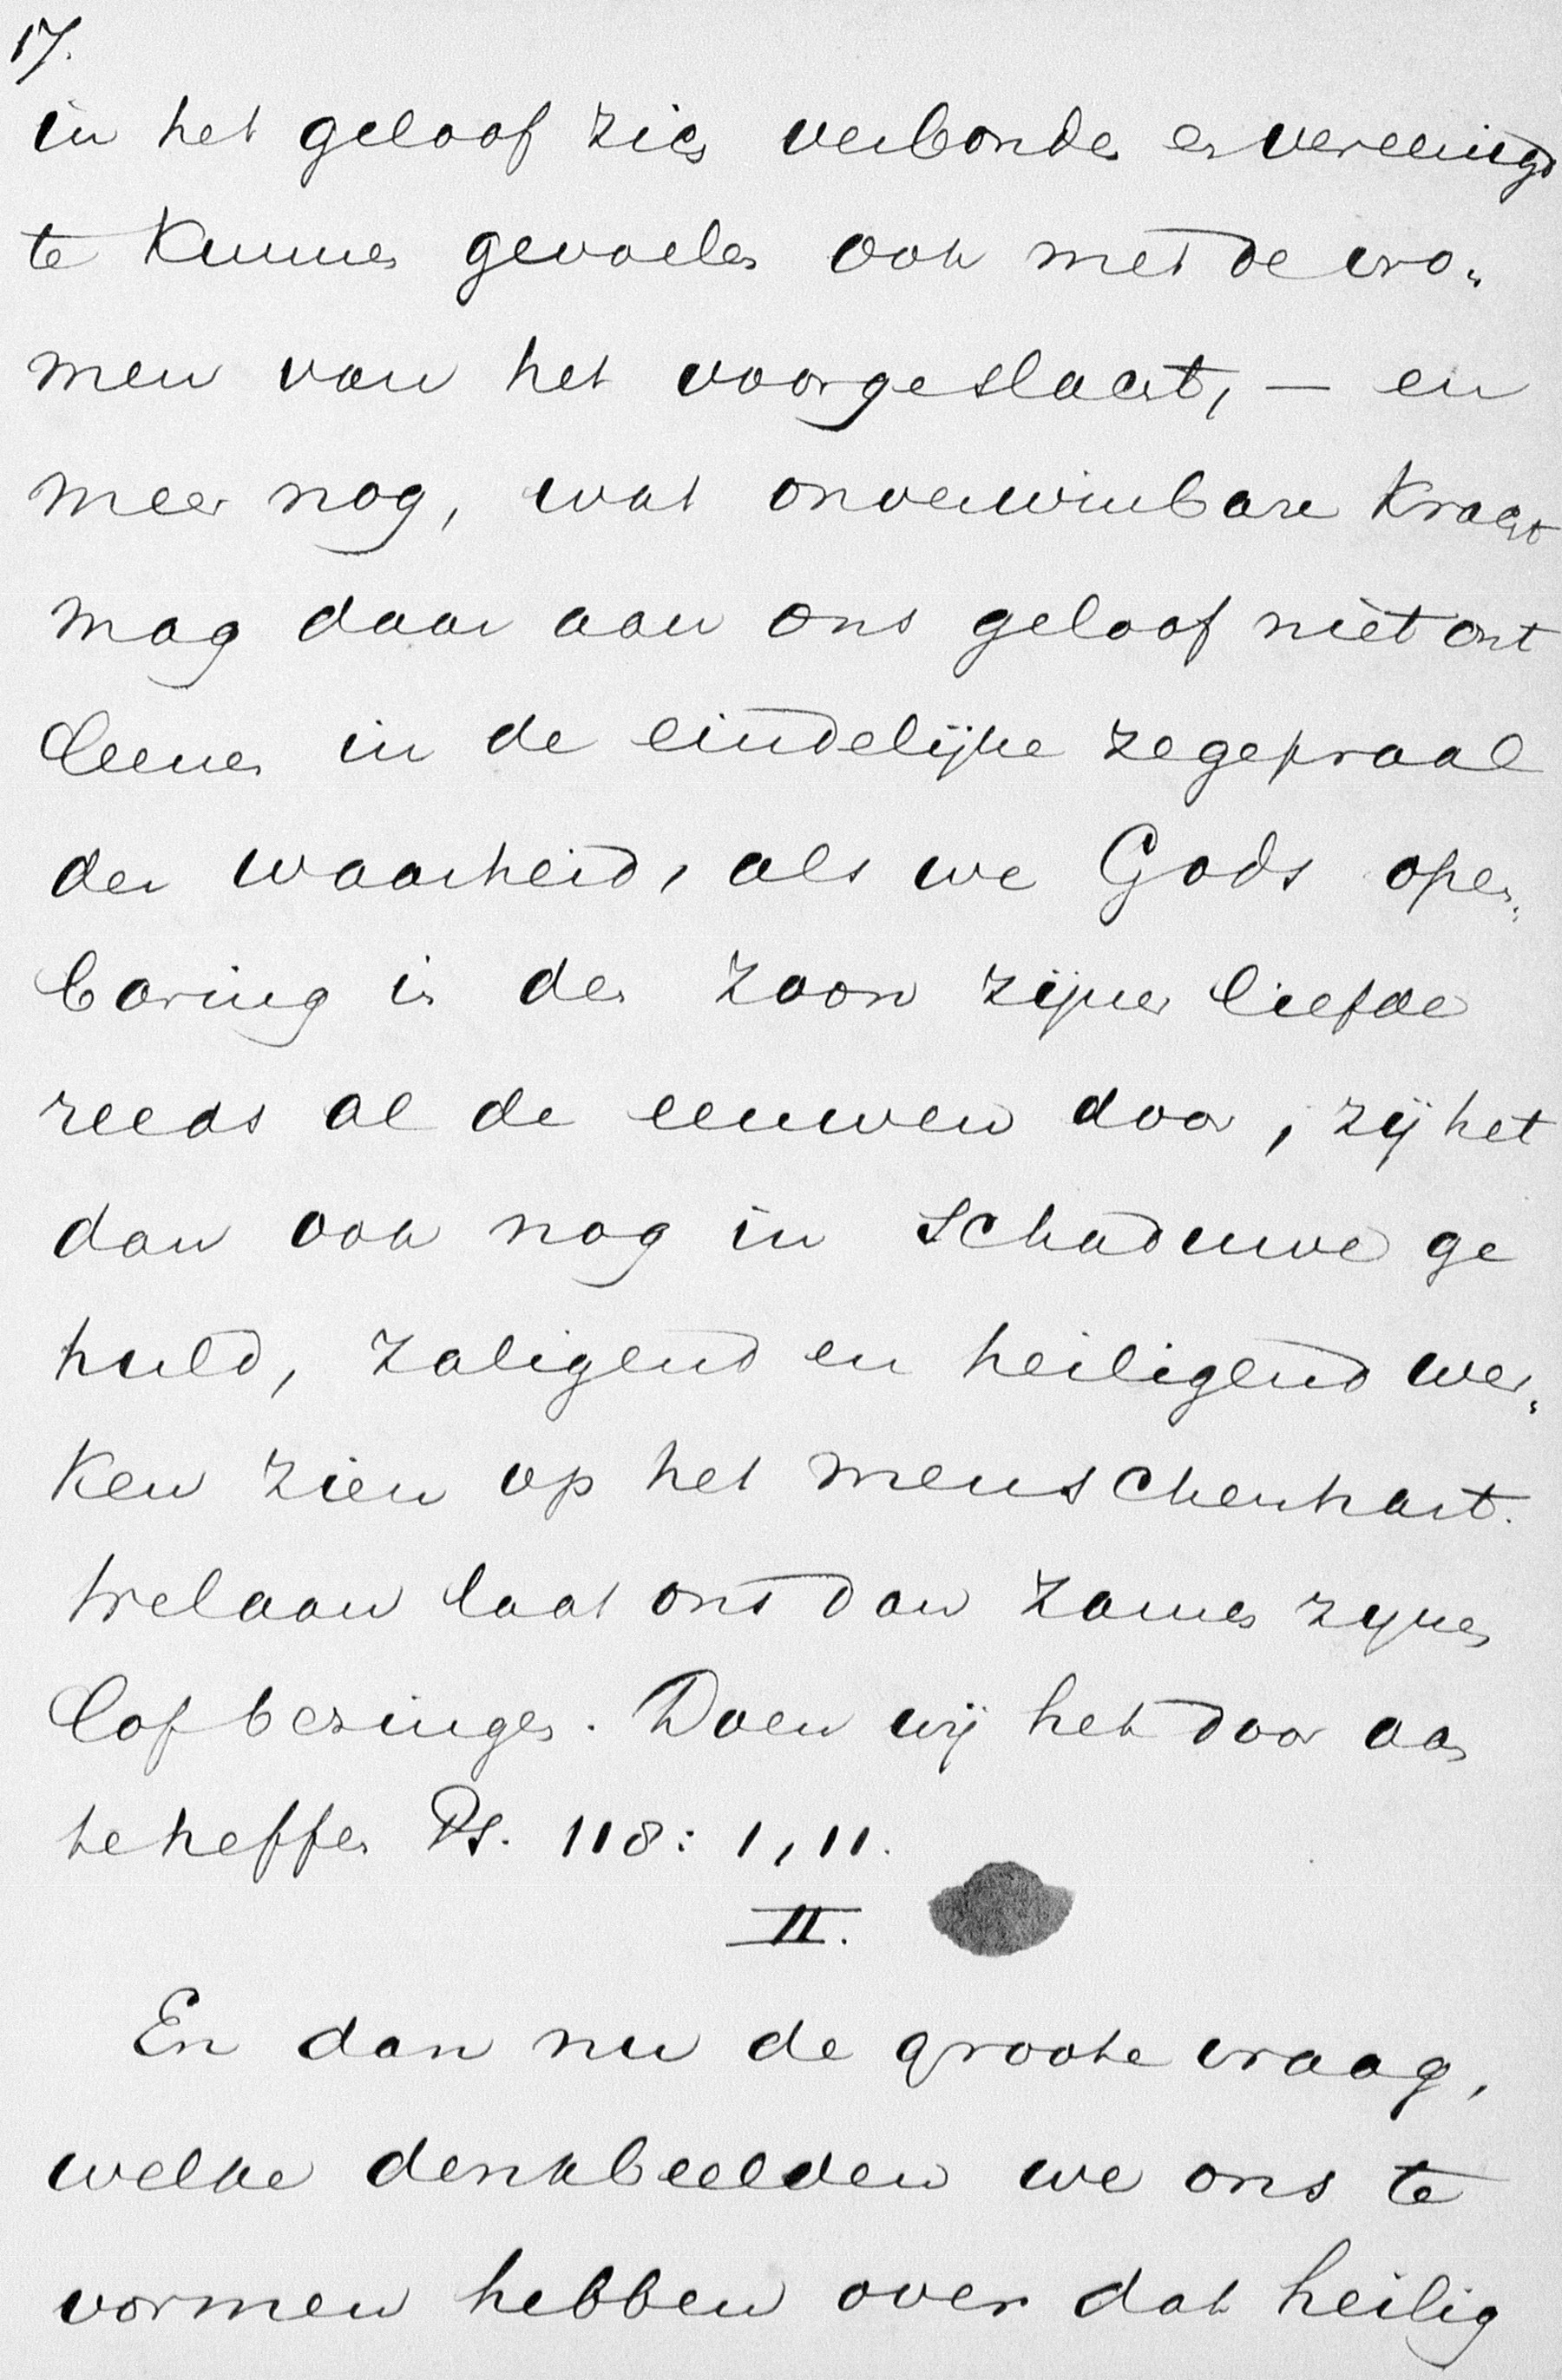 17.
in het geloof zich verbonden en vereenigd
te kunnen gevoelen ook met de vro„
men van het voorgeslacht, — en
meer nog, wat onverwinbare kracht
mag daar aan ons geloof niet ont
leenen in de eindelijke zegepraal
der waarheid, als we Gods open„
baring in den Zoon zijner liefde
reeds al de eeuwen door, zij het
dan ook nog in schaduwe ge
huld, zaligend en heiligend wer„
ken zien op het menschenhart.
Welaan laat ons dan zamen zynen
lof bezingen. Doen wij het door aan
te heffen Ps. 118: 1, 11.
II.
En dan nu de groote vraag,
welke denkbeelden we ons te
vormen hebben over dat heilig